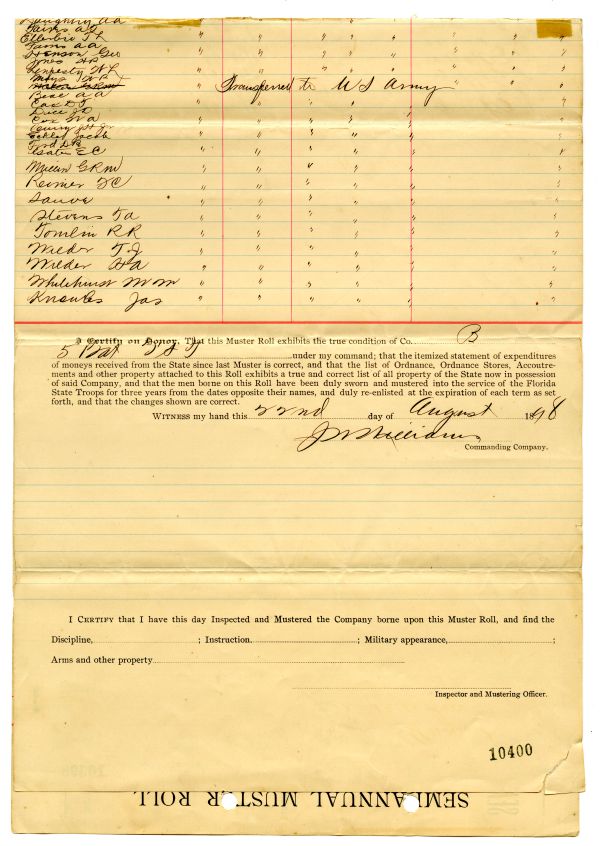 Daughtry A A
Ellerbie T L
Tanns A A
Henson Geo
Jones H P
Mays W R
Transferred to U S Army
Bead A A
Cox D T
Duce J D
Cox W A
Curry J H Jr
Ford D B
Isater E C
Mizell G R M
Revnier F C
Sauve
Stevens T A
Tomlin R R
Wilder T J
Wilder H A
Whitehurst M M
Knowles Jas
I Certify on Honor, That this Muster Roll exhibits the true condition of Co. B
5 Bat F S T under my command; that the itemized statement of expenditures
of moneys received from the State since last Muster is correct, and that the list of Ordnance, Ordnance Stores, Accoutre-
ments and other property attached to this Roll exhibits a true and correct list of all property of the State now in possession
of said Company, and that the men borne on this Roll have been duly sworn and mustered into the service of the Florida
State Troops for three years from the dates opposite their names, and duly re-enlisted at the expiration of each term as set
forth, and that the changes shown are correct.
Witness my hand this 22nd day of August 1898
J W Williams
Commanding Company.
I Certify that I have this day Inspected and Mustered the Company borne upon this Muster Roll, and find the
Discipline, ; Instruction ; Military appearance, ;
Arms and other property
Inspector and Mustering Officer.
10400
SEMI-ANNUAL MUSTER ROLL